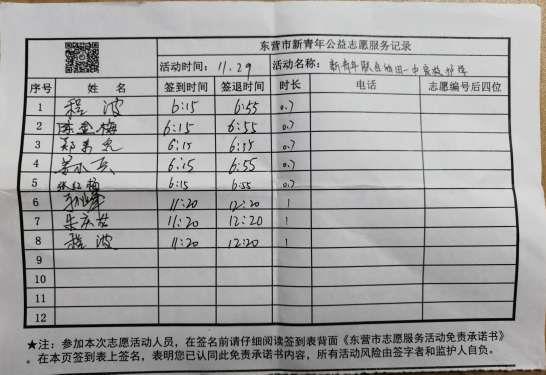 东营市新青年公益志愿服务记录
活动时间: 11.29 活动名称: 新青年
序号 姓 名 签到时间 签退时间 时长 电话 志愿编号后四位
1 程 波 6:15 6:55 0.7
2 6:15 6:55 0.7
3 6:15 6:55 0.7
4 6:15 6:55 0.7
5 6:15 6:55 0.7
6 11:20 12:20 1
7 11:20 12:20 1
8 程 波 11:20 12:20 1
9
10
11
12
★注: 参加本次志愿活动人员, 在签名前请仔细阅读签到表背面《东营市志愿服务活动免责承诺书》
。在本页签到表上签名, 表明您已认同此免责承诺书内容, 所有活动风险由签字者和监护人自负。